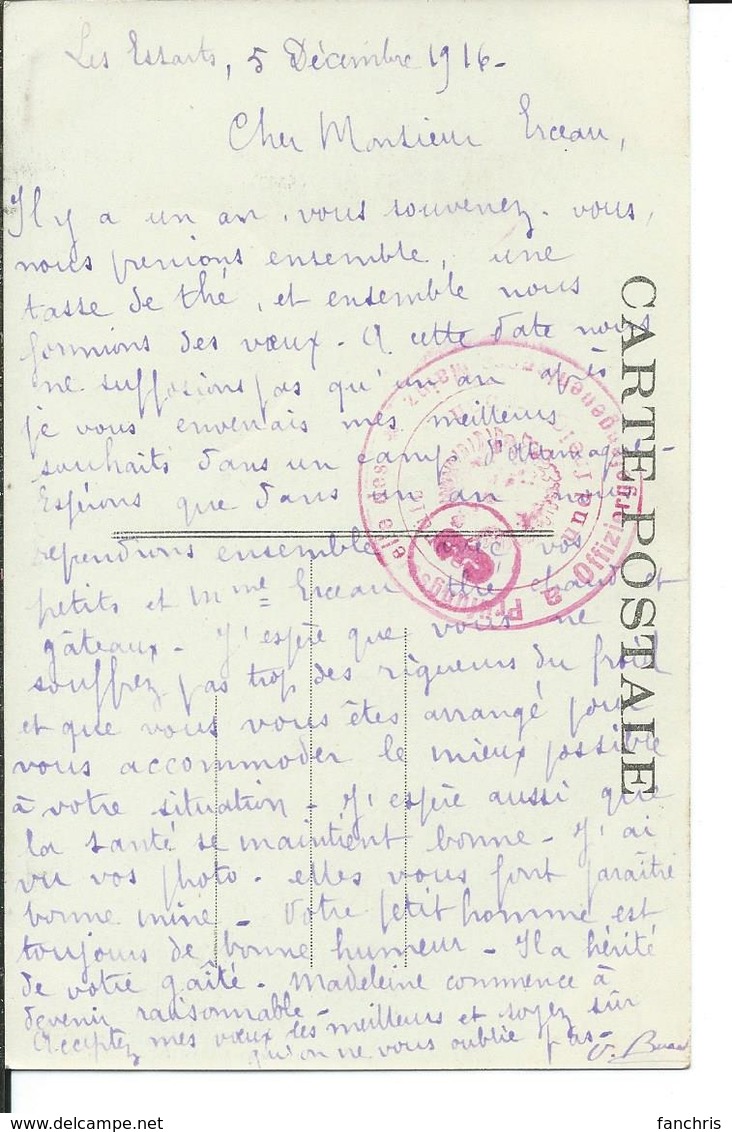 Les Essarts, 5 Décembre 1916-
Cher Monsieur Erceau,
Il y a un an, vous souvenez-vous,
nous prenions ensemble, une
tasse de thé, et ensemble nous
formions des vœux - A cette date nous
ne supposions pas qu'un an après
je vous enverrais mes meilleurs
souhaits dans un camp d'Allemagne-
Espérons que dans un an nous
reprendrons ensemble avec vos
petits et Mme Erceau thé chaud et
gâteaux - J'espère que vous ne
souffrez pas trop des rigueurs du froid
et que vous vous êtes arrangé pour
vous accommoder le mieux possible
à votre situation - J'espère aussi que
la santé se maintient bonne - J'ai
vu vos photo - elles vous font paraître
bonne mine - Votre petit homme est
toujours de bonne humeur - Il a hérité
de votre gaîté - Madeleine commence à
devenir raisonnable -
Acceptez mes vœux les meilleurs et soyez sûr
qu'on ne vous oublie pas -
CARTE POSTALE
Prüfungsstelle des Offizier
Mainz
fanchris